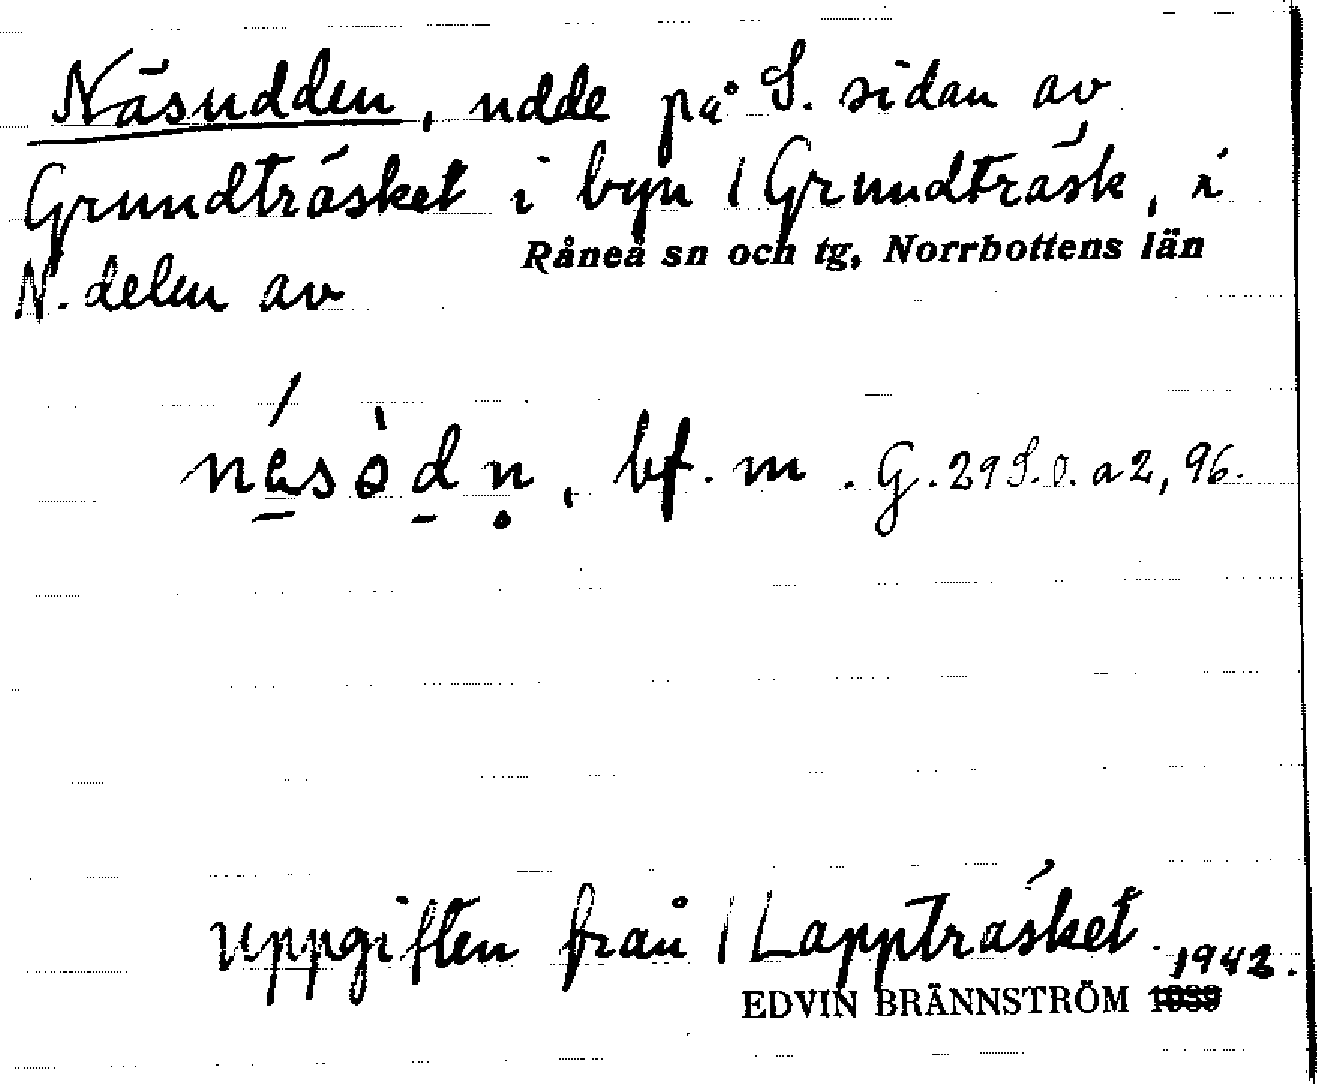 Näsudden, udde på S. sidan av
Grundträsket i byn / Grundträsk, i
Råneå sn och tg, Norrbottens län
N. delen av
bf. m. G. 29 S.0. a 2, 96.
Uppgiften från / Lappträsket 1942.
EDVIN BRÄNNSTRÖM 1939